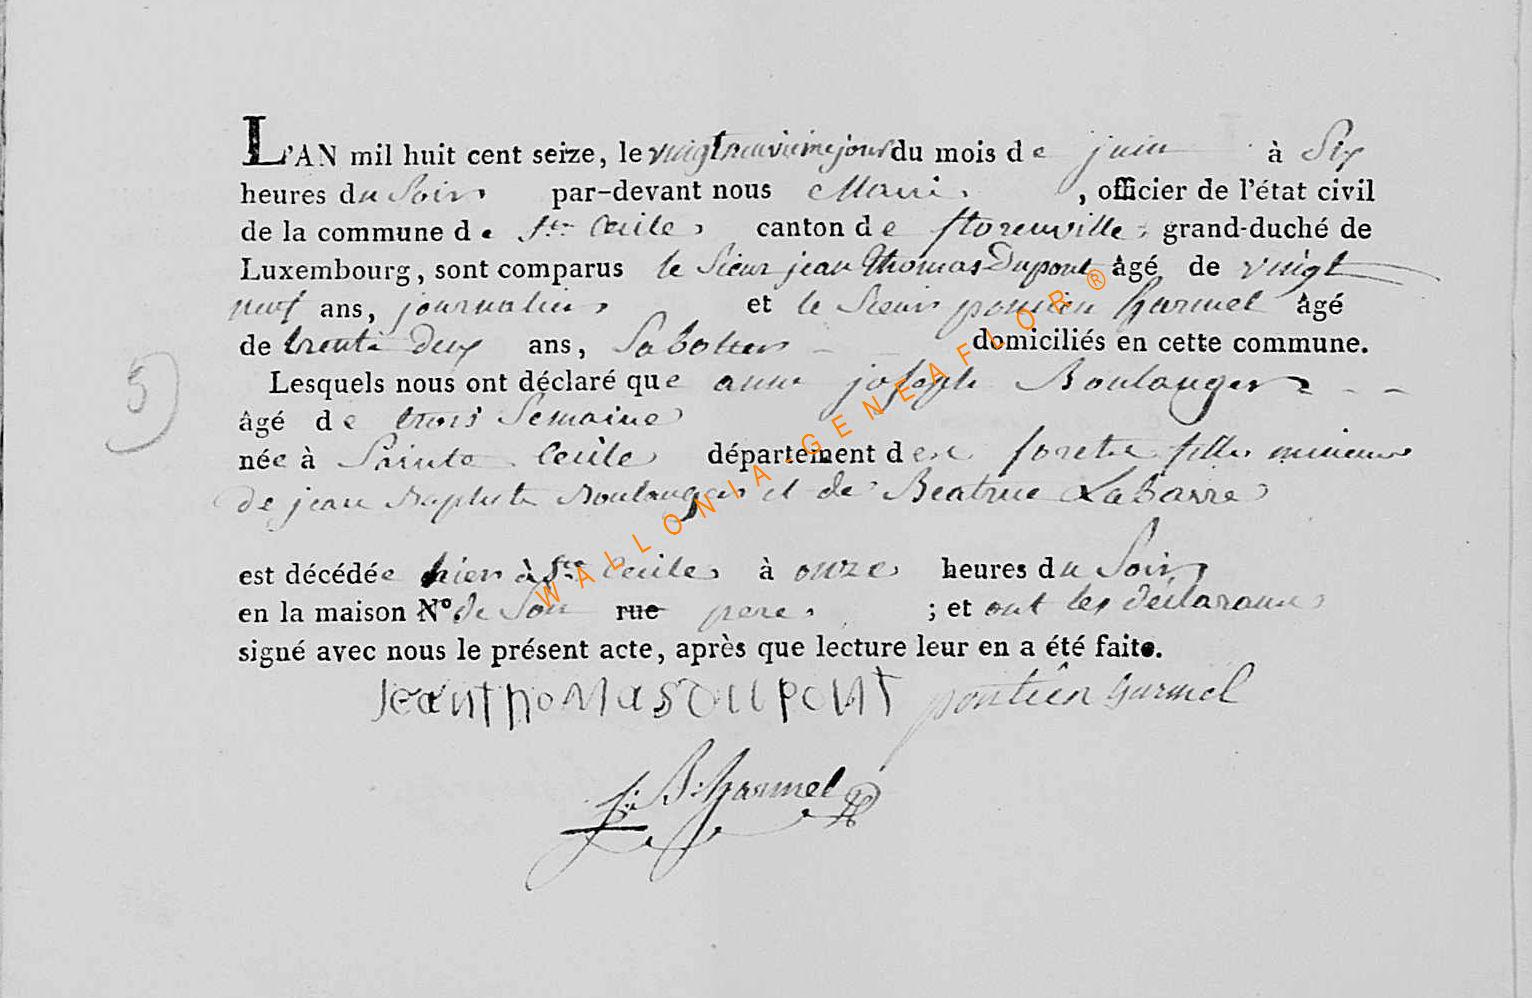 L'AN mil huit cent seize, le vingtneuvieme jour du mois de juin à Six
heures du Soir par-devant nous Maire, officier de l'état civil
de la commune de Ste Cecile, canton de florenville, grand-duché de
Luxembourg, sont comparus le Sieur jean thomas Dupont âgé de vingt
neuf ans, journalier et le Sieur pontien harmel âgé
de trente deux ans, Sabotier domiciliés en cette commune.
Lesquels nous ont déclaré que anne joseph Boulanger
âgé de trois Semaine
née à Sainte Cecile département des foretes fille mineure
de jean Baptiste Boulanger et de Beatrice LaBarre
est décédée hier à Ste Cecile à onze heures du Soir
en la maison N° de Son rue pere ; et ont les declarans
signé avec nous le présent acte, après que lecture leur en a été faite.
Jean thomas Dupont pontien harmel
J: B: harmel
5
WALLONIA-GENEAFLOR®